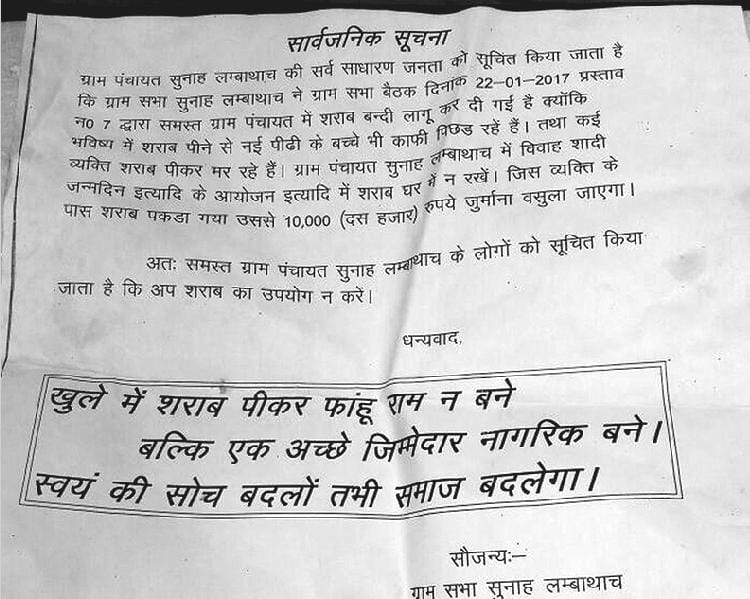 सार्वजनिक सूचना
ग्राम पंचायत सुनाह लम्बाथाच की सर्व साधारण जनता को सूचित किया जाता है
कि ग्राम सभा सुनाह लम्बाथाच ने ग्राम सभा बैठक दिनांक 22-01-2017 प्रस्ताव
न0 7 द्वारा समस्त ग्राम पंचायत में शराब बन्दी लागू कर दी गई है क्योंकि
भविष्य में शराब पीने से नई पीढी के बच्चे भी काफी पिछड रहें हैं। तथा कई
व्यक्ति शराब पीकर मर रहे हैं। ग्राम पंचायत सुनाह लम्बाथाच में विवाह शादी
जन्मदिन इत्यादि के आयोजन इत्यादि में शराब घर में न रखें। जिस व्यक्ति के
पास शराब पकडा गया उससे 10,000 (दस हजार) रुपये जुर्माना वसुला जाएगा।
अतः समस्त ग्राम पंचायत सुनाह लम्बाथाच के लोगों को सूचित किया
जाता है कि अप शराब का उपयोग न करें।
धन्यवाद,
खुले में शराब पीकर फांहू राम न बने
बल्कि एक अच्छे जिम्मेदार नागरिक बने।
स्वयं की सोच बदलों तभी समाज बदलेगा।
सौजन्यः–
ग्राम सभा सुनाह लम्बाथाच